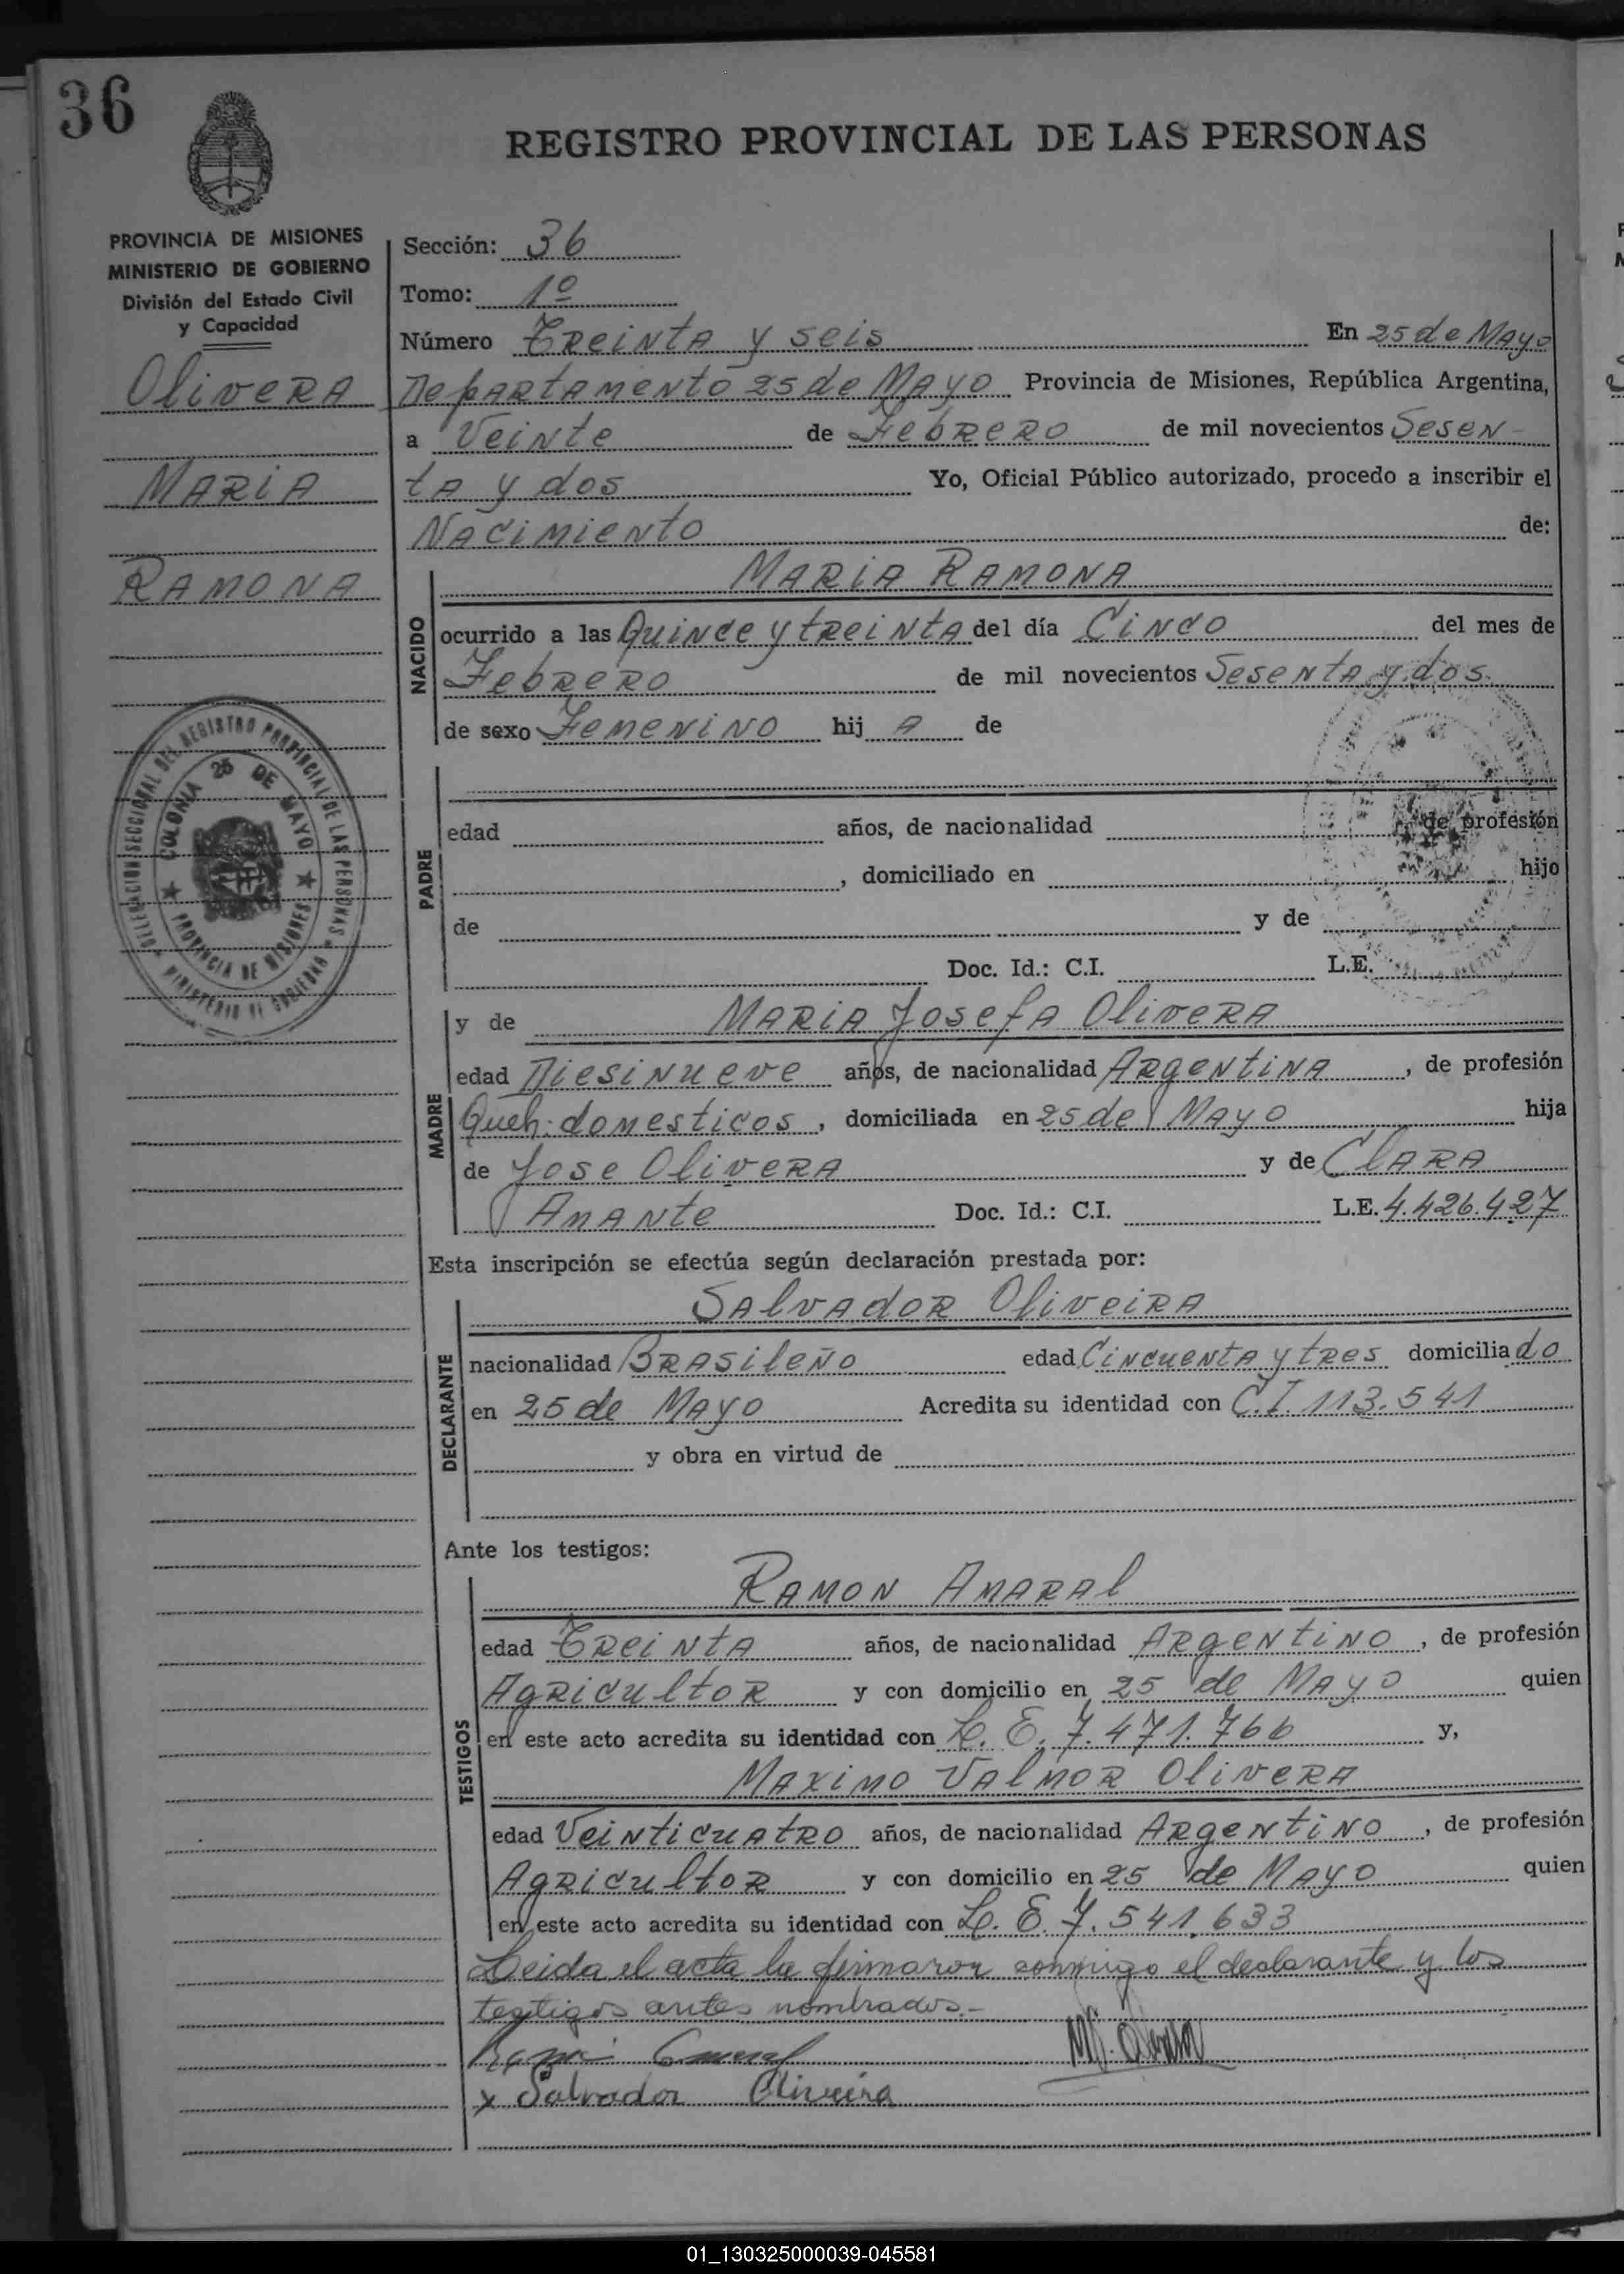 36
REGISTRO PROVINCIAL DE LAS PERSONAS
PROVINCIA DE MISIONES
MINISTERIO DE GOBIERNO
División del Estado Civil
y Capacidad
Olivera
Maria
Ramona
DELEGACION SECCIONAL DEL REGISTRO PROVINCIAL DE LAS PERSONAS
MINISTERIO DE GOBIERNO
COLONIA 25 DE MAYO
PROVINCIA DE MISIONES
Sección: 36
Tomo: 1º
Número Treinta y seis En 25 de Mayo
Departamento 25 de Mayo Provincia de Misiones, República Argentina,
a Veinte de Febrero de mil novecientos Sesen
ta y dos Yo, Oficial Público autorizado, procedo a inscribir el
Nacimiento de:
NACIDO
Maria Ramona
ocurrido a las Quince y treinta del día Cinco del mes de
Febrero de mil novecientos Sesenta y dos
de sexo Femenino hij a de
PADRE
edad años, de nacionalidad de profesión
, domiciliado en hijo
de y de
Doc. Id.: C.I. L.E.
MADRE
y de Maria Josefa Olivera
edad Diesinueve años, de nacionalidad Argentina , de profesión
Queh. domesticos , domiciliada en 25 de Mayo hija
de Jose Olivera y de Clara
Amante Doc. Id.: C.I. L.E. 4.426.427
Esta inscripción se efectúa según declaración prestada por:
DECLARANTE
Salvador Oliveira
nacionalidad Brasileño edad Cincuenta y tres domiciliado
en 25 de Mayo Acredita su identidad con C.I. 113.541
y obra en virtud de
Ante los testigos:
TESTIGOS
Ramon Amaral
edad Treinta años, de nacionalidad Argentino , de profesión
Agricultor y con domicilio en 25 de Mayo quien
en este acto acredita su identidad con L. E. 7.471.766 y,
Maximo Valmor Olivera
edad Veinticuatro años, de nacionalidad Argentino , de profesión
Agricultor y con domicilio en 25 de Mayo quien
en este acto acredita su identidad con L. E. 7.541.633
Leida el acta la firmaron conmigo el declarante y los
testigos antes nombrados.-
x Salvador Oliveira
01_130325000039-045581